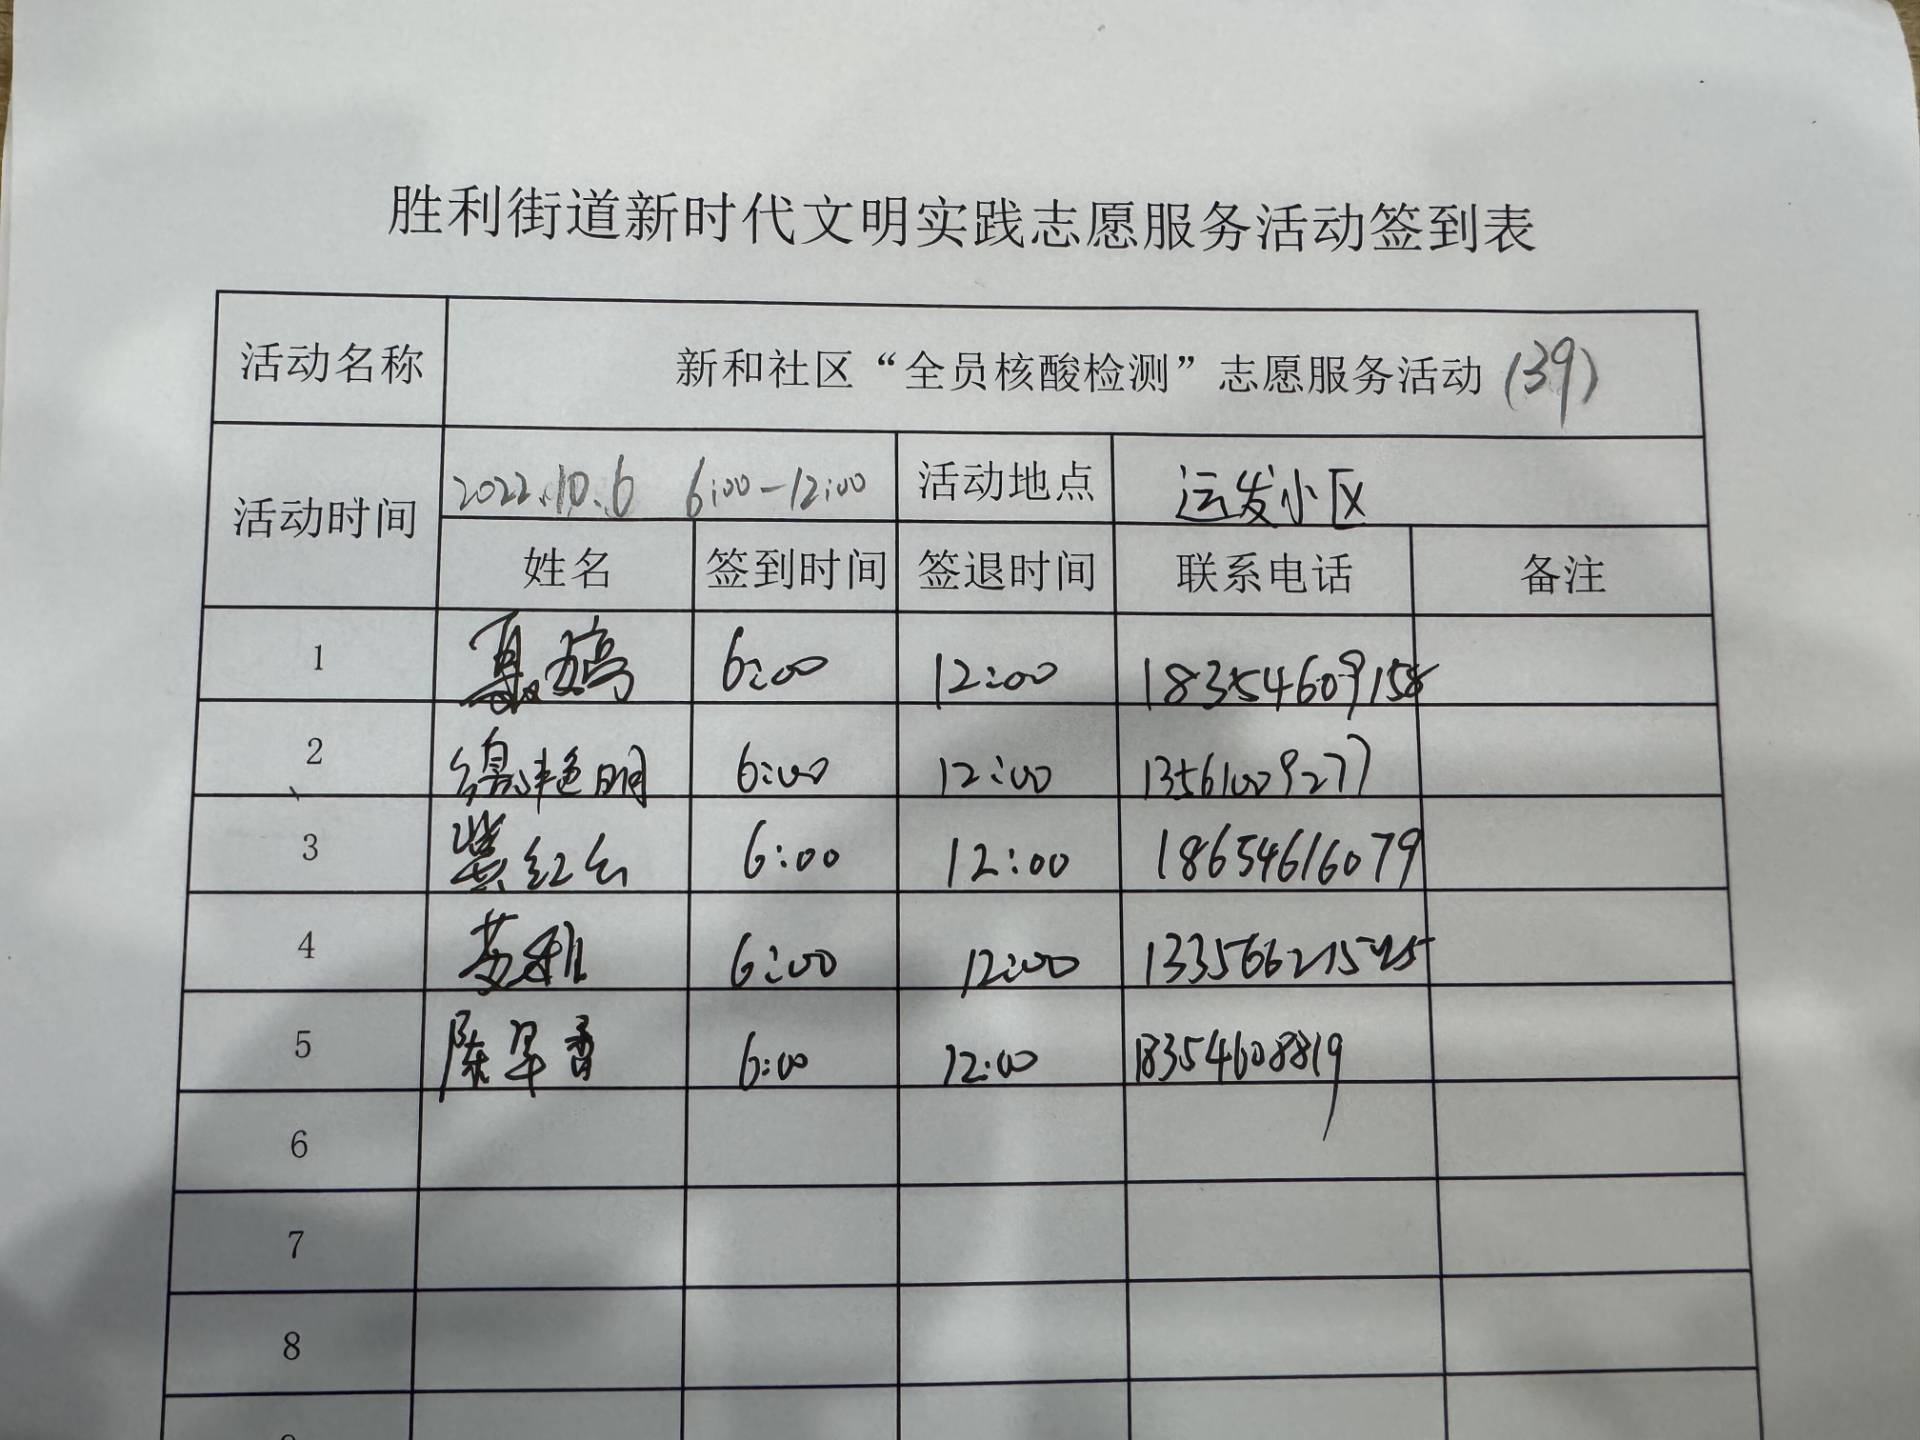 胜利街道新时代文明实践志愿服务活动签到表
活动名称 新和社区“全员核酸检测”志愿服务活动 (39)
活动时间 2022.10.6 6:00-12:00 活动地点 运发小区
姓名 签到时间 签退时间 联系电话 备注
1 6:00 12:00 18354609158
2 艳明 6:00 12:00 13561009277
3 6:00 12:00 18654616079
4 6:00 12:00
5 陈早香 6:00 12:00 18354608819
6
7
8